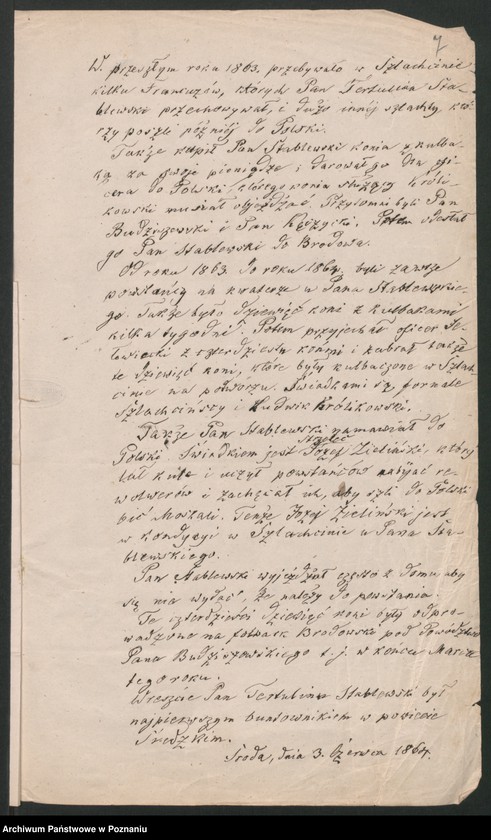 7
W przeszłym roku 1863. przebywało w Szlachcinie
kilku Francuzów, których Pan Tertulian Sta-
blewski przechowywał, i dużo innéj szlachty, któ-
rzy poszli późniéj do Polski.
Także kupił Pan Stablewski konia z kulba-
ką za swoje pieniądze i darował go dla ofi-
cera do Polski, którego konia służący Króli-
kowski musiał objeżdżać. Przytomni byli Pan
Budziszewski i Pan Potem odesłał
go Pan Stablewski do Brodowa.
Od roku 1863. do roku 1864. byli zawsze
powstańcy na kwaterze u Pana Stablewskie-
go. Także było dziewięć koni z kulbakami
kilka tygodni. Potem przyjechał oficer
z czterdziestu końmi i zabrał także
te dziewięć koni, które były kulbaczone w Szlach-
cinie na podwórzu. Świadkami są, fornale
Szlachcińscy i Ludwik Królikowski.
Także Pan Stablewski namawiał do
Polski. Świadkiem jest Strzelec Józef Zieliński, który
lał kule i uczył powstańców nabijać re-
wolwerów i zachęcał ich, aby szli do Polski
bić Moskali. Tenże Józef Zieliński jest
w kondycyi w Szlachcinie u Pana Sta-
blewskiego.
Pan Stablewski wyjeżdżał często z domu, aby
się nie wydać, że należy do powstania.
Te czterdzieści dziewięć koni były odpro-
wadzone na folwark Brodowski pod dowództwem
Pana Budziszewskiego t. j. w końcu Marca
tego roku.
Wreszcie Pan Tertulian Stablewski był
najpierwszym buntownikiem w powiecie
Średzkim.
Środa, dnia 3. Czerwca 1864.
Archiwum Państwowe w Poznaniu
szukajwarchiwach.gov.pl